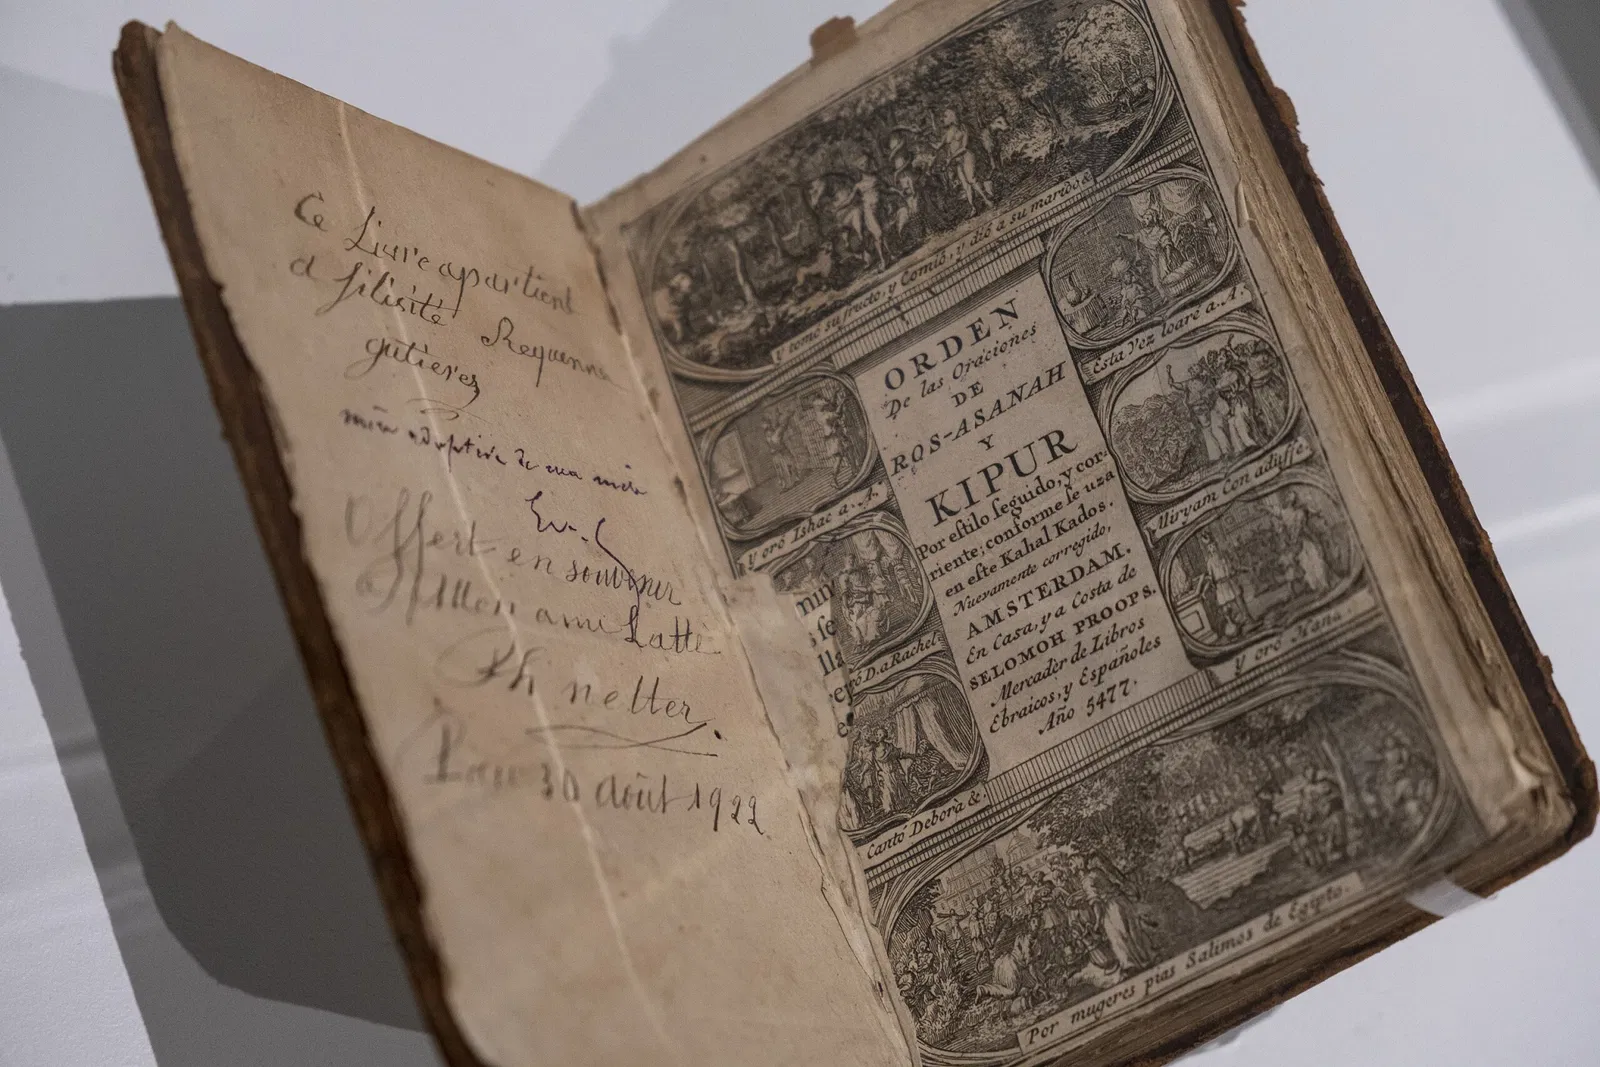 Ce Livre apartient
a filisité Requenna
gutierez
mère adoptive de ma mère
Offert en souvenir
A Mon ami Latté
Ph netter.
Pau 30 Août 1922
y tomó su fructo, y Comió, y dió a su marido, &
ORDEN
De las Oraciones
DE
ROS-ASANAH
Y
KIPUR
Por eſtilo ſeguido, y cor-
riente; conforme ſe uza
en eſte Kahal Kados.
Nuevamente corregido,
AMSTERDAM.
En Casa, y a Costa de
SELOMOH PROOPS.
Mercadèr de Libros
Ebraicos, y Españoles
Año 5477.
y oró Ishac a. A.
oró D. a Rachel
Cantó Debora &.
Esta Vez loaré a. A.
Miryam Con aduffe
y oró Haná.
Por mugeres pias Salimos de Egipto.